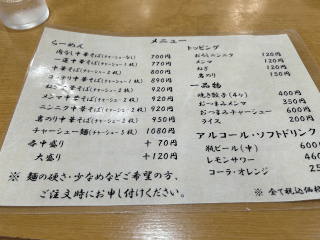 メニュー
らーめん
肉なし中華そば(チャーシューなし) 700円
一途中華そば(チャーシュー1枚) 770円
中華そば(チャーシュー2枚) 800円
中華そば(チャーシュー1枚) 820円
ねぎ中華そば(チャーシュー2枚) 920円
メンマ中華そば(チャーシュー2枚) 920円
ニンニク中華そば(チャーシュー2枚) 920円
岩のり中華そば(チャーシュー2枚) 950円
チャーシュー麺(チャーシュー5枚) 1080円
中盛り +70円
大盛り +120円
トッピング
おろしニンニク 120円
メンマ 120円
ねぎ 120円
岩のり 150円
一品物
焼き餃子(4ヶ) 400円
おつまみメンマ 350円
おつまみチャーシュー 600円
ライス 200円
アルコール・ソフトドリンク
瓶ビール(中) 600
レモンサワー 460
コーラ・オレンジ 25
※ 麺の硬さ・少なめなどご希望の方、
ご注文時にお申し付けください。
※ 全て税込価格